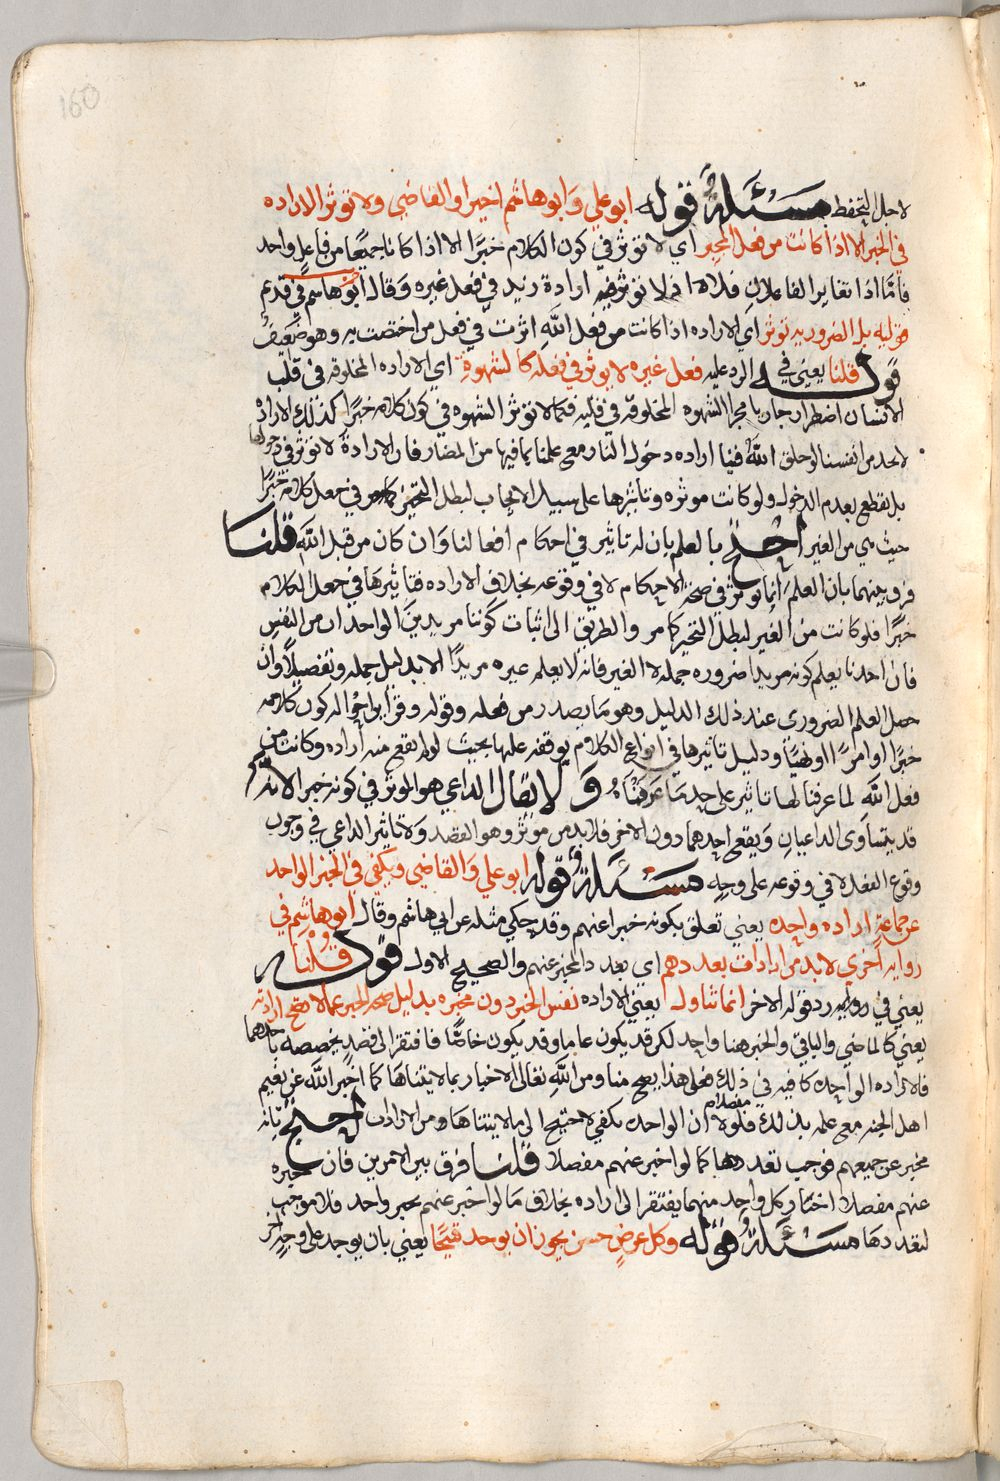 160
لاجل التحفظ مسئلة قوله ابو علي وابو هاشم اخيرا والقاضي ولا توثر الاراده
في الخبر الا اذا كانت من فعل المخبر اي لا توثر في كون الكلام خبرًا الا اذا كانا جميعًا من فاعل واحد
فامّا اذا تغاير الفاعلان فلا اذ لا توثر ارادة زيد في فعل غيره وقال ابو هاشم في قديم
قوليه بل الضروريه توثر اي الاراده اذا كانت من فعل الله اثرت في فعل من اختصت به وهو ضعيف
قوله قلنا يعني في الرد عليه فعل غيره لا يوثر في فعله كالشهوة اي الاراده المخلوقه في قلب
الانسان اضطرار جار يا مجرا الشهوه المخلوقه في قلبه فكما لا توثر الشهوه في كون كلامه خبرًا كذلك الارادة
لانجد من انفسنا لو خلق الله فينا اراده دخول النار مع علمنا بما فيها من المضار فان الارادة لا توثر في دخولها
بل نقطع بعدم الدخول ولو كانت موثره وتاثيرها على سبيل الايجاب لبطل التحيز كامر في جعل كلامه خبرًا
حيث هي من الغير احتج بالعلم بان له تاثير في احكام افعالنا وان كان من قبل الله قلنا
فرق بينهما بان العلم انما يوثر في صحة الاحكام لا في وقوعه بخلاف الاراده فتاثيرها في جعل الكلام
خبرًا فلو كانت من الغير لبطل التحيز كما مر والطريق الى اثبات كوننا مريدين الواحدان من النفس
فان احدنا يعلم كونه مريدا ضروره جملة لا الغير فانه لا يعلم غيره مريدًا الا بدليل جمله وتفصيلًا وان
حصل العلم الضروري عند ذلك الدليل وهو ما يصدر من فعله وقوله وقراين احواله كون كلامه
خبرًا او امرًا او نهيًا ودليل تاثيرها في انواع الكلام يوقفه عليها بحيث لولا يقع منه اراده وكانت من
فعل الله لما عرفنا لها تاثير على حد ما عرفناه ولا يقال الداعي هو الموثر في كونه خبرا لانه
قد يتساوى الداعيان ويقع احدهما دون الاخر فلابد من موثر وهو القصد ولا تاثير الداعي في وجوب
وقوع الفعل لا في وقوعه على وجه مسئلة قوله ابو علي والقاضي ويكفي في الخبر الواحد
عن جماعة اراده واحده يعني تعلق بكونه خبرا عنهم وقد حكي مثله عن ابي هاشم وقال ابو هاشم في
روايه اخري لا بد من ارادات بعددهم اي بعدد المخبر عنهم والصحيح الاول قوله قلنا
يعني في رد قوله الاخر انما تناول يعني الاراده نفس الخبر دون مخبره بدليل صحه الخبر عما لا تصح ارادته
يعني كالماضي والباقي والخبر هنا واحد لكن قد يكون عاما وقد يكون خاصًّا فافتقر الى قصد يخصصه باحدهما
فالاراده الواحده كافيه في ذلك فعلى هذا يصح منا ومن الله تعالى الاخبار بما لا يتناها كما اخبر الله عن نعيم
اهل الجنه مع علمه بذلك مفصلا فلولا ان الواحده تكفي لاحتيج الى ما لا يتناها ومن الارادات احتج بانه
مخبر عن جميعهم فوجب تعددها كما لو اخبر عنهم مفصلا قلنا فرق بين الامرين فان خبره
عنهم مفصلا اخبار كل واحد منهما يفتقر الى اراده بخلاف ما لو اخبر عنهم بخبر واحد فلا موجب
لتعددها مسئلة قوله وكل عرض حسن يجوز ان يوجد قبيحًا يعني بان يوجد على وجه اخر